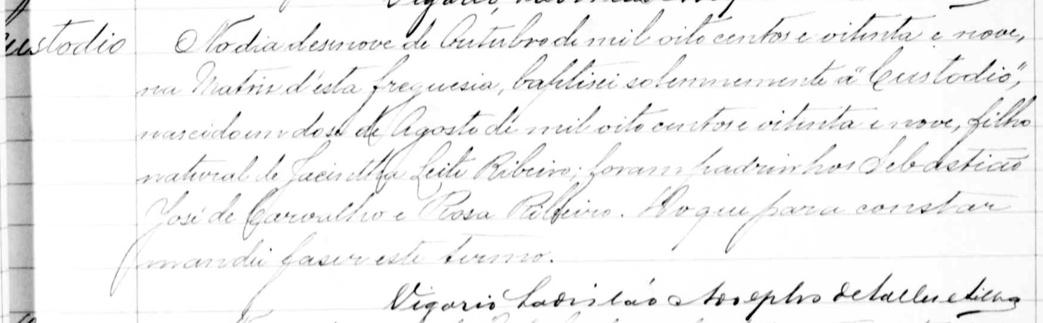 Custodio
No dia desenove de Outubro de mil oito centos e oitenta e nove,
na Matriz d'esta freguesia, baptisei solemnemente á "Custodio",
nascido em dose de Agosto de mil oito centos e oitenta e nove, filho
natural de Jacintha Leite Ribeiro; foram padrinhos Sebastião
José de Carvalho e Rosa Ribeiro. Do que para constar
mandei faser este termo.
Vigario Ladisláo Adolpho de Salles e Silva